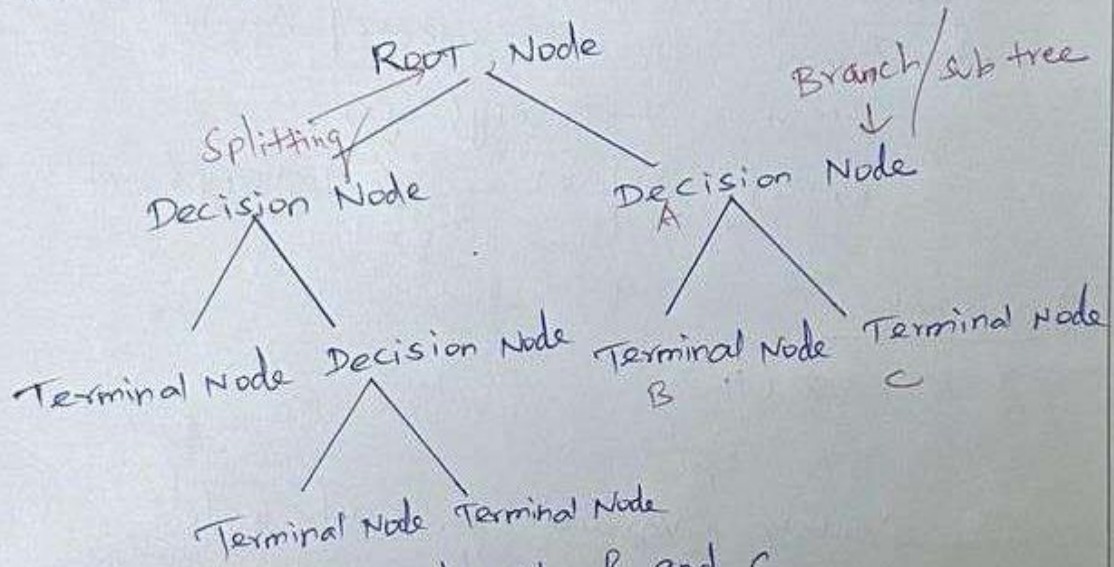 ROOT Node
Branch/sub tree
Splitting
↓
Decision Node
Decision Node
A
Terminal Node
Decision Node
Terminal Node
Terminal Node
B
C
Terminal Node
Terminal Node
B and C